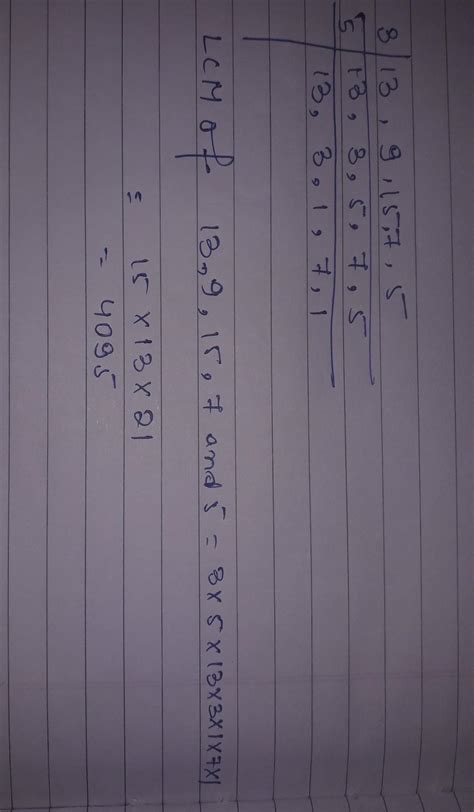 3 | 13, 9, 15, 7, 5
5 | 13, 3, 5, 7, 5
13, 3, 1, 7, 1
LCM of 13, 9, 15, 7 and 5 = 3×5×13×3×1×7×1
= 15 × 13 × 21
= 4095